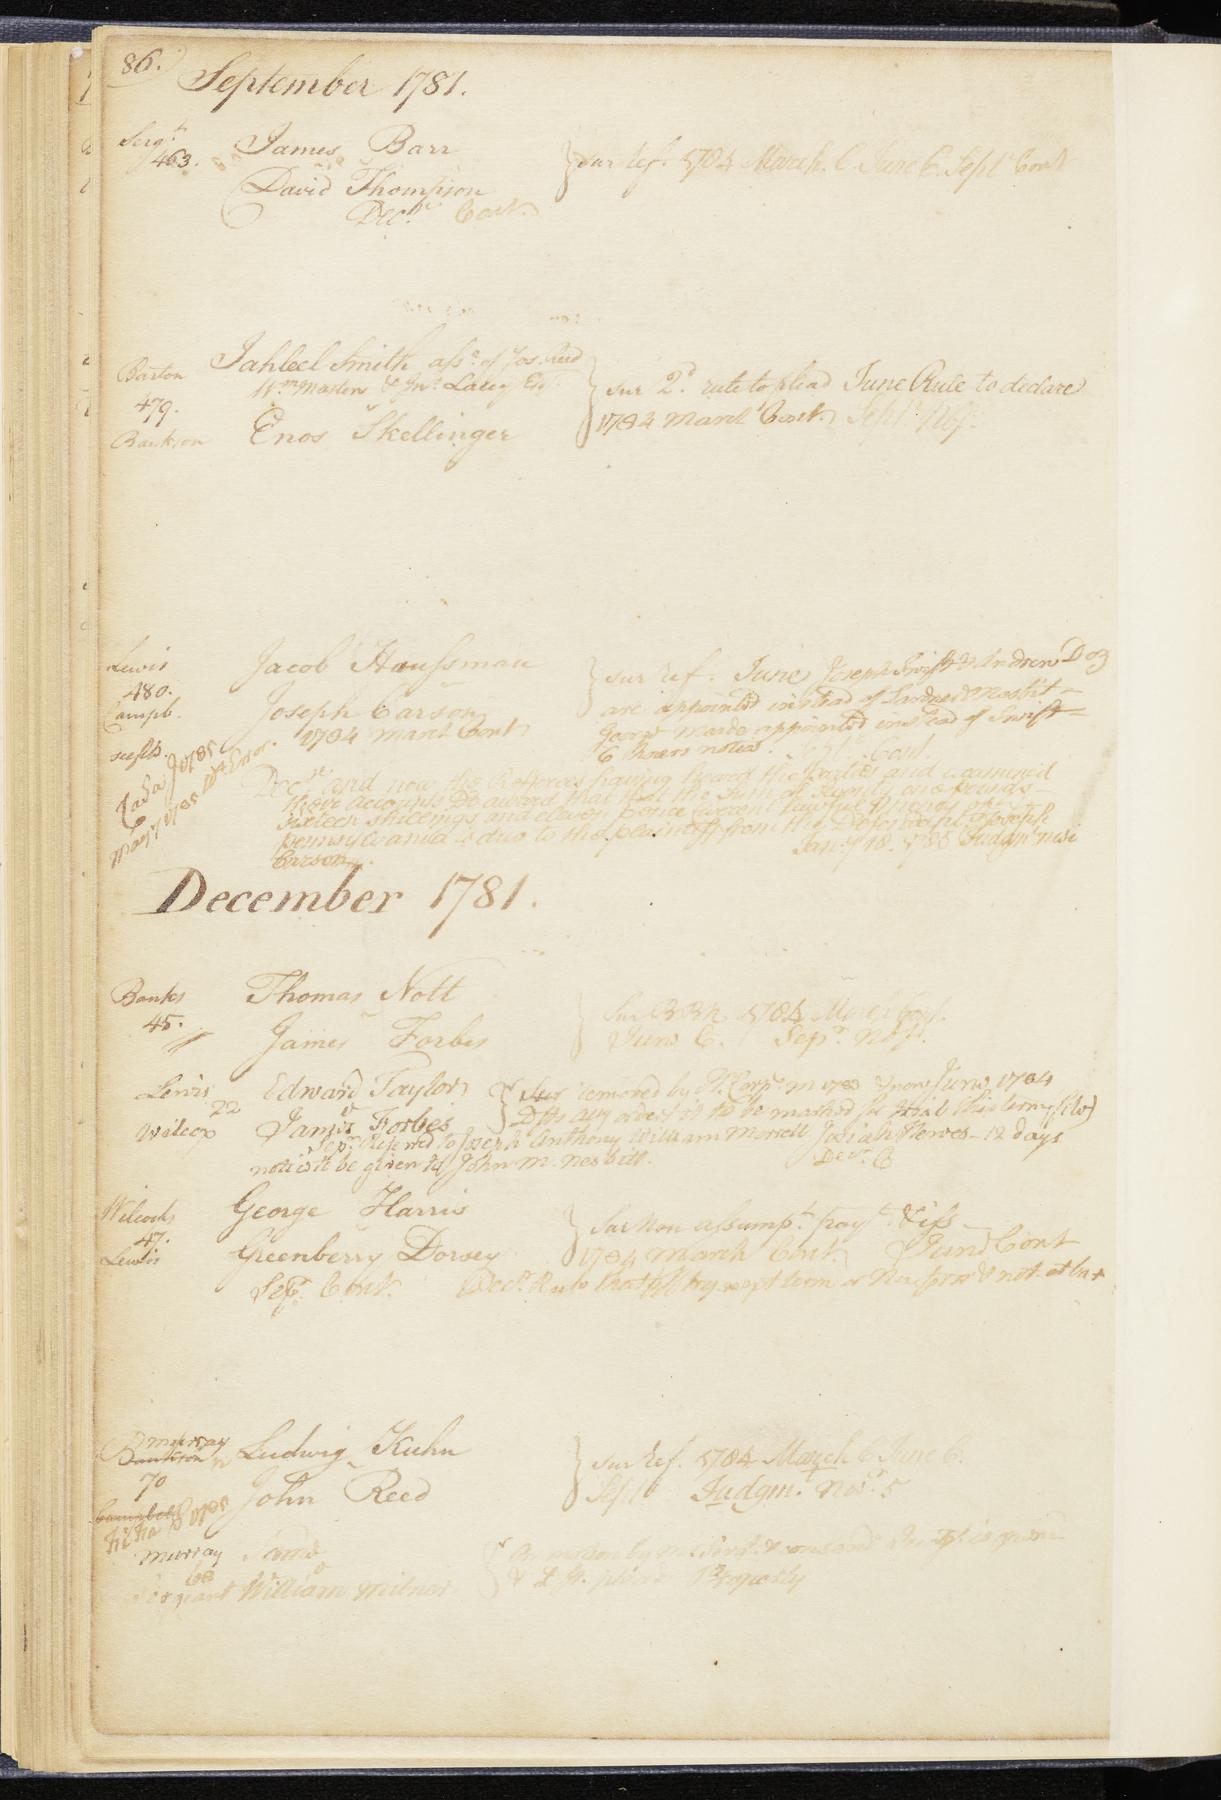 86.
September 1781.
Sergt
463.
James Barr
David Thompson
Decr Cont.
Sur ref. 1784 March. C. June C. Sept Cont
Barton
479.
Bankson
Jahleel Smith assee of Jos. Reed
Wm Masters & Jno Lacey Esqr
Enos Skellinger
Sur 2d. rule to plead June Rule to declare
1784 March Cont. Sept.
Lewis
480.
Campb.
Jacob Haussman
Joseph Carson
1784 March Cont
sur ref. June Joseph Swift & Andrew Doz
are appointed instead of Lardner & Nesbit
George Meade appointed instead of Swift
6 hours notice. Sept. Cont.
Decr and now the Referees having heard the Parties and examined
their Accounts Do award that the Sum of one Pounds
sixteen shillings and eleven pence current lawful Money of
Pennsylvania is due to the plaintiff from the Defendant Joseph
Carson.
Jany 18. 1785 Judgmt nisi
December 1781.
Banks
45.
Thomas Nott
James Forbes
1784 March Cont.
June C. Sepr
Lewis
22
Wilcox
Edward Taylor
James Forbes
Sur removed by 1783 & now June 1784
to be marked for trial this term
Sepr Referred to Joseph Anthony William Morrell Josiah Hewes - 12 days
notice to be given to John M. Nesbitt.
Decr C
Wilcocks
47.
Lewis
George Harris
Greenberry Dorsey
Sur Non Assumpt. payt. & iss
1784 March Cont. June Cont
Sepr. Cont. Decr. Rule that plf try next term or Non pros & not
Murray
Bankson
70
Campbell
Ludwig Kuhn
John Reed
sur ref. 1784 March C June C.
Sept Judgmt. Nov. 5
Murray
68
Sergeant
Same
William Milnor
On motion by
Property